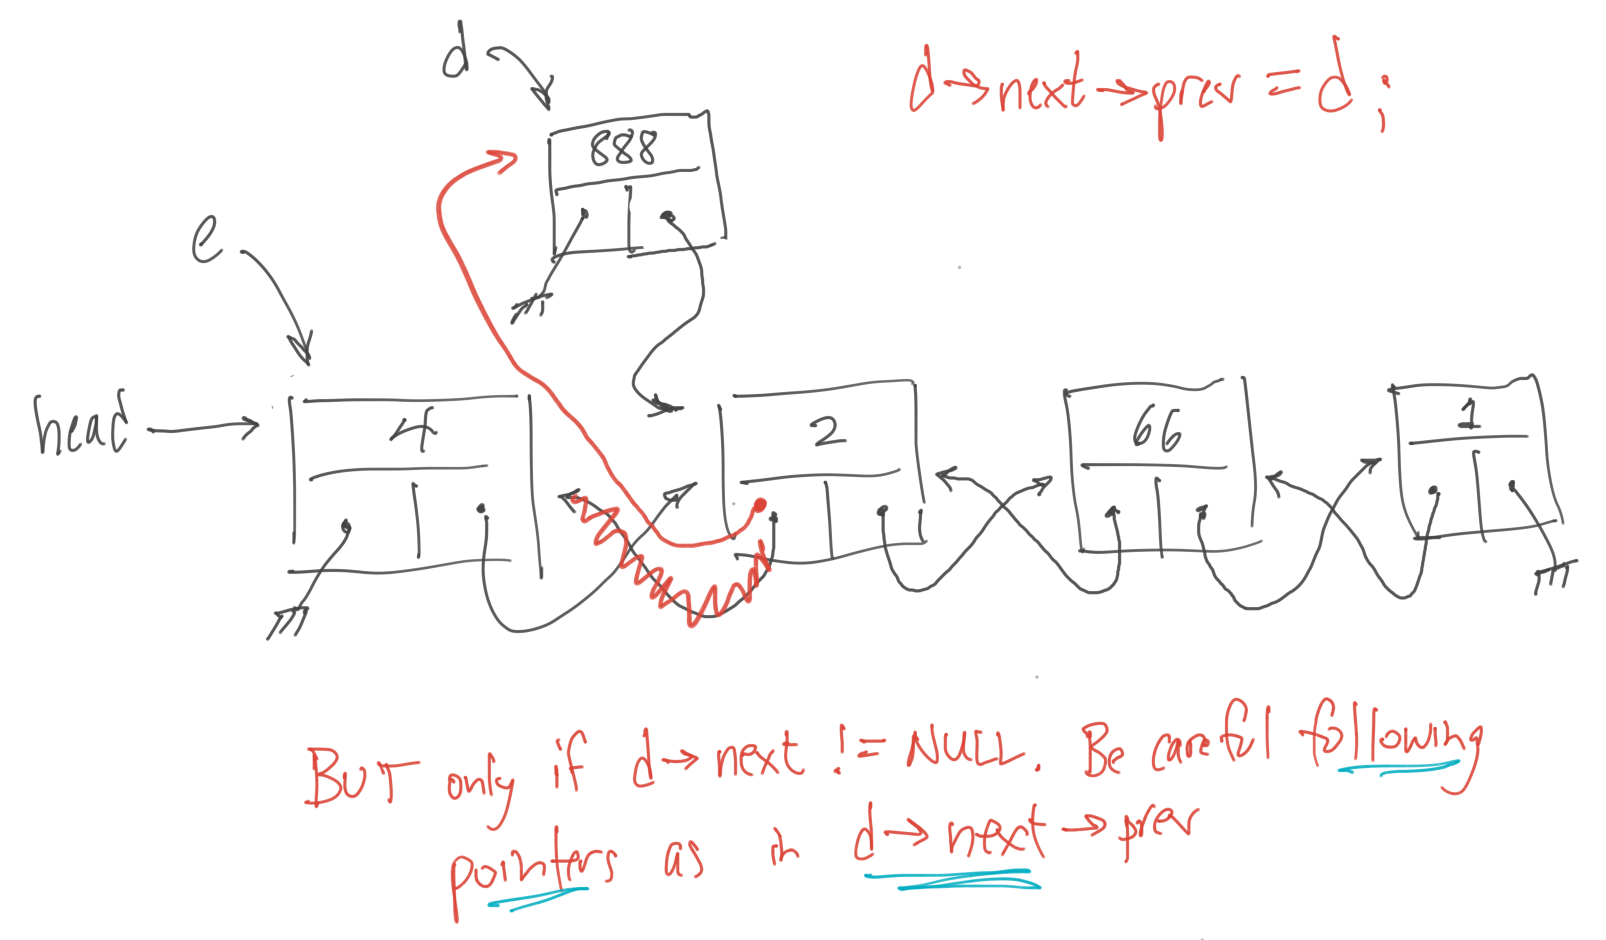 d
d→next→prev = d;
888
e
head
4
2
66
1
BUT only if d→next != NULL. Be careful following
pointers as in d→next→prev